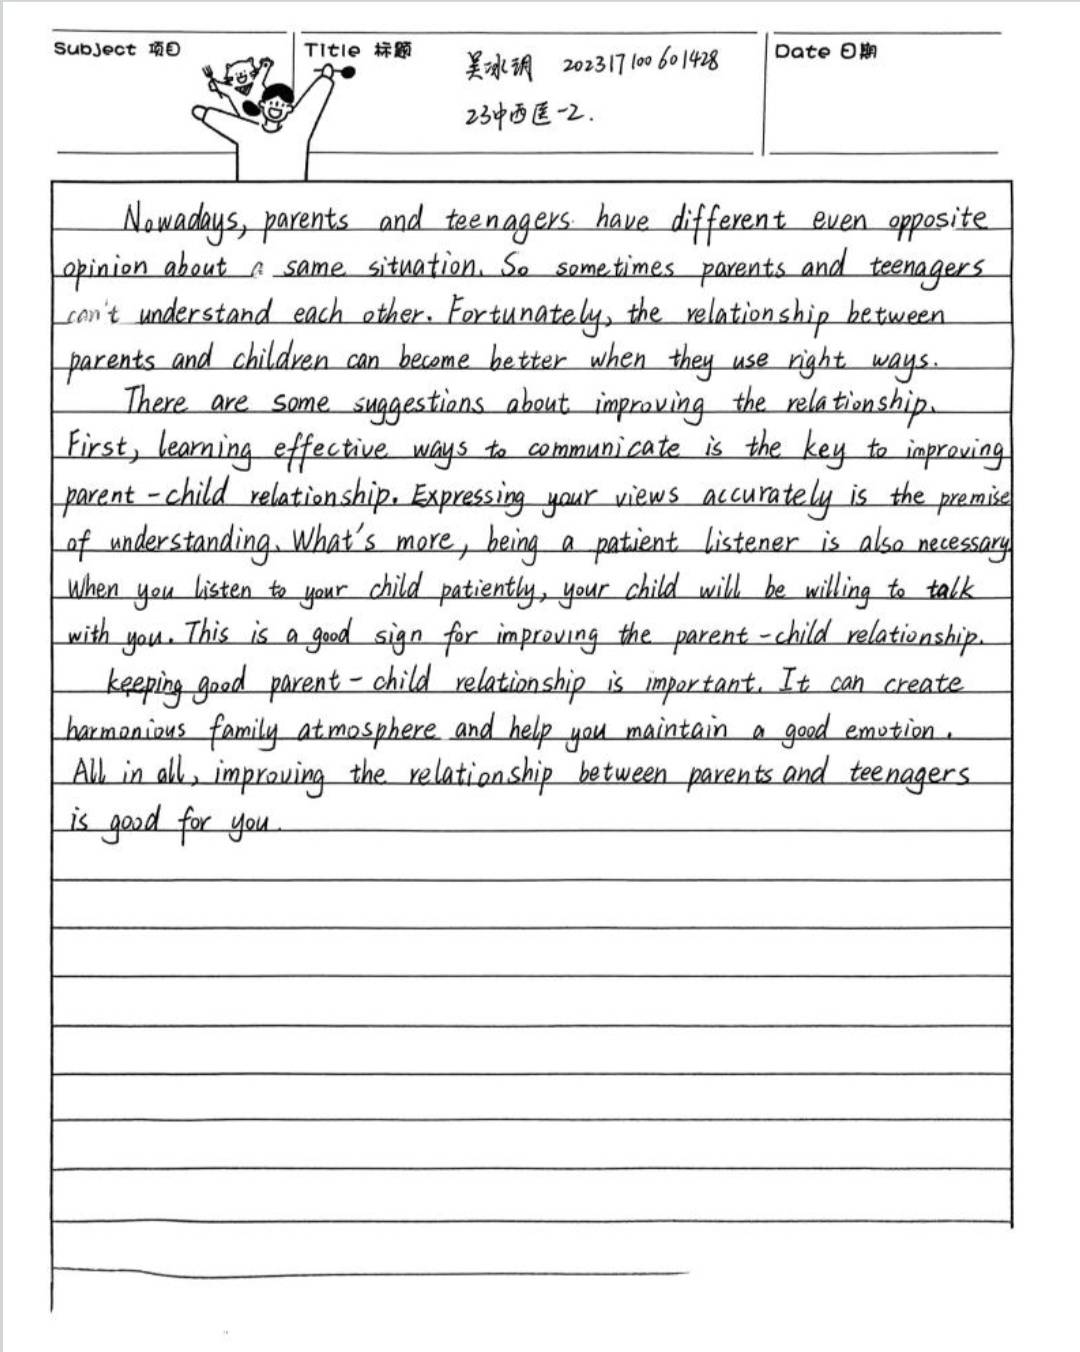 Subject 项目
Title 标题
吴冰玥 202317100601428
Date 日期
23中西医-2.
Nowadays, parents and teenagers have different even opposite
opinion about a same situation. So sometimes parents and teenagers
can't understand each other. Fortunately, the relationship between
parents and children can become better when they use right ways.
There are some suggestions about improving the relationship.
First, learning effective ways to communicate is the key to improving
parent-child relationship. Expressing your views accurately is the premise
of understanding. What's more, being a patient listener is also necessary.
When you listen to your child patiently, your child will be willing to talk
with you. This is a good sign for improving the parent-child relationship.
keeping good parent-child relationship is important. It can create
harmonious family atmosphere and help you maintain a good emotion.
All in all, improving the relationship between parents and teenagers
is good for you.